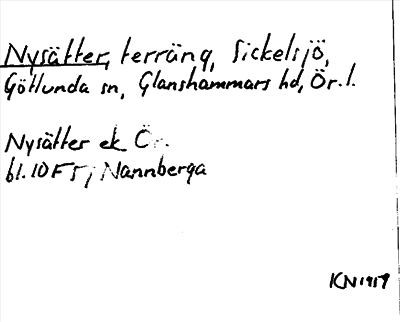 Nysätter, terräng, Sickelsjö,
Götlunda sn, Glanshammars hd, Ör. l.
Nysätter ek Ör.
bl. 10F 5; Nannberga
KN 1959